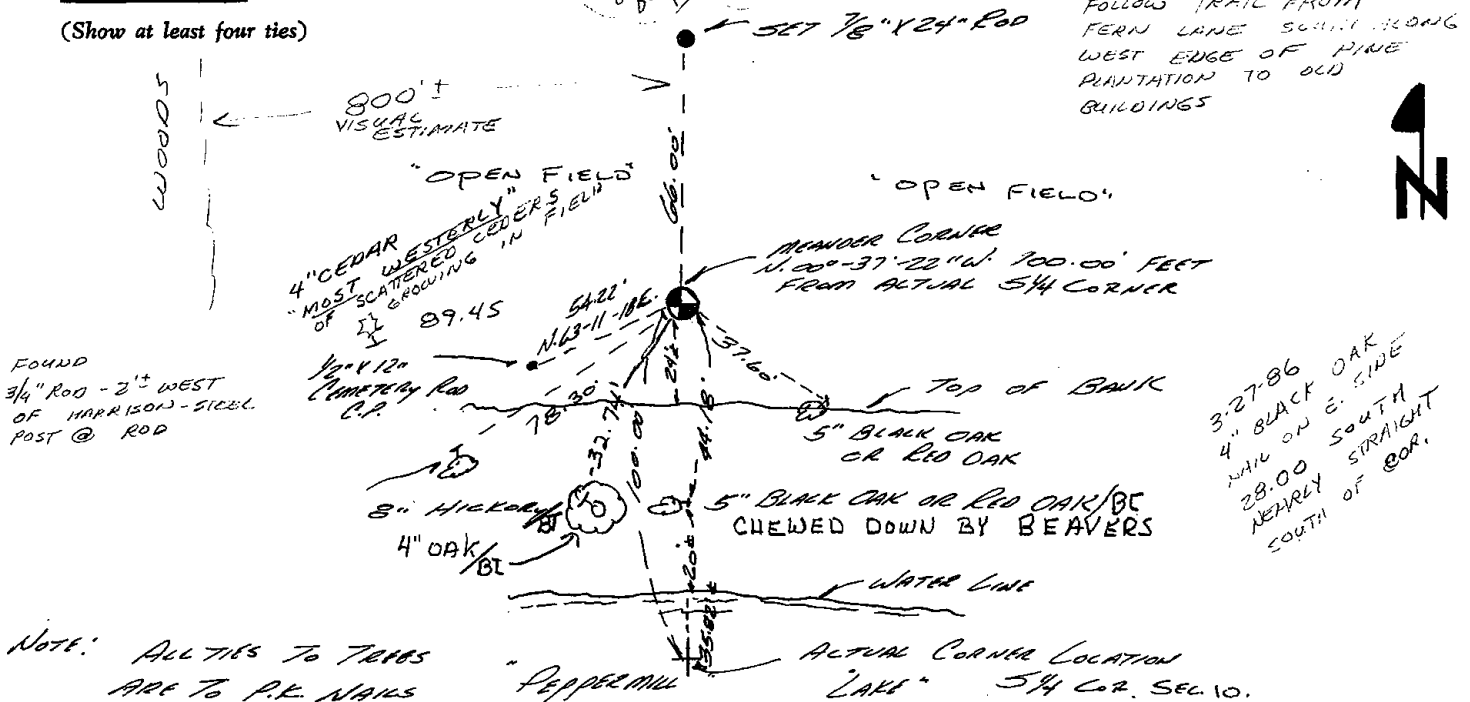 (Show at least four ties)
SET 7/8" X 24" ROD
FOLLOW TRAIL FROM
FERN LANE SOUTH ALONG
WEST EDGE OF PINE
PLANTATION TO OLD
BUILDINGS
WOODS
800'±
VISUAL
ESTIMATE
N
"OPEN FIELD"
66.00'
"OPEN FIELD"
4" CEDAR
"MOST WESTERLY"
OF SCATTERED CEDERS
GROWING IN FIELD"
89.45
MEANDER CORNER
N.00°-37'-22"W. 100.00' FEET
FROM ACTUAL S1/4 CORNER
54.22'
N.63-11-18E.
37.60'
24'±
FOUND
3/4" ROD - 2'± WEST
OF HARRISON-STEEL
POST @ ROD
1/2" X 12"
CEMETERY ROD
C.P.
78.30'
32.74'
100.00
44.18'
TOP OF BANK
5" BLACK OAK
OR RED OAK
3-27-86
4" BLACK OAK
NAIL ON E. SIDE
28.00 SOUTH
NEARLY STRAIGHT
SOUTH OF COR.
8" HICKORY
BT
4" OAK/BT
5" BLACK OAK OR RED OAK/BT
CHEWED DOWN BY BEAVERS
20'±
WATER LINE
55.82±
NOTE: ALL TIES TO TREES
ARE TO P.K. NAILS
"PEPPERMILL LAKE"
ACTUAL CORNER LOCATION
S1/4 COR. SEC. 10.